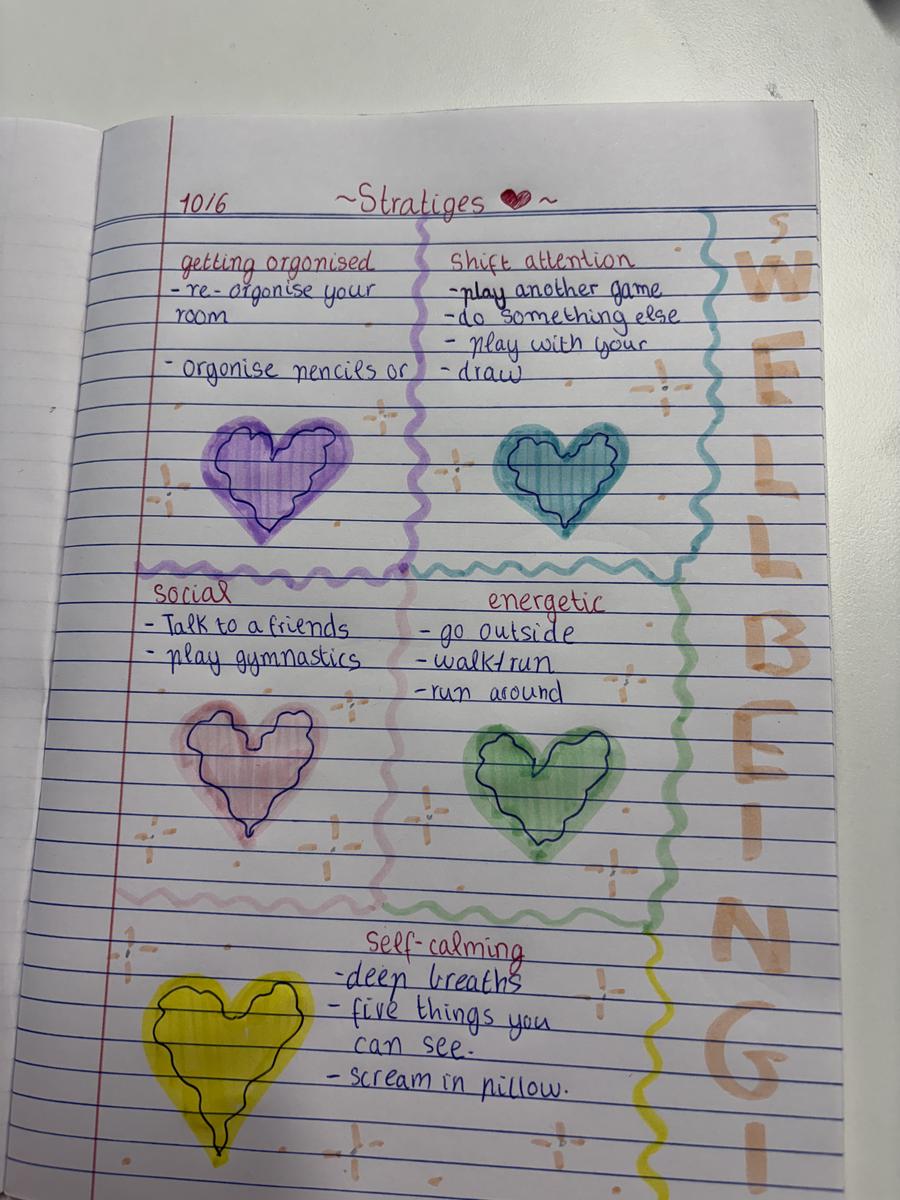 10/6
~Stratiges ~
getting orgonised
-re-orgonise your
room
- orgonise pencils or
Shift attention
-play another game
-do something else
- play with your
- draw
social
- Talk to a friends
- play gymnastics
energetic
- go outside
-walk/run
-run around
self-calming
-deep breaths
- five things you
can see.
- scream in pillow.
S
W
E
L
L
B
E
I
N
G
I